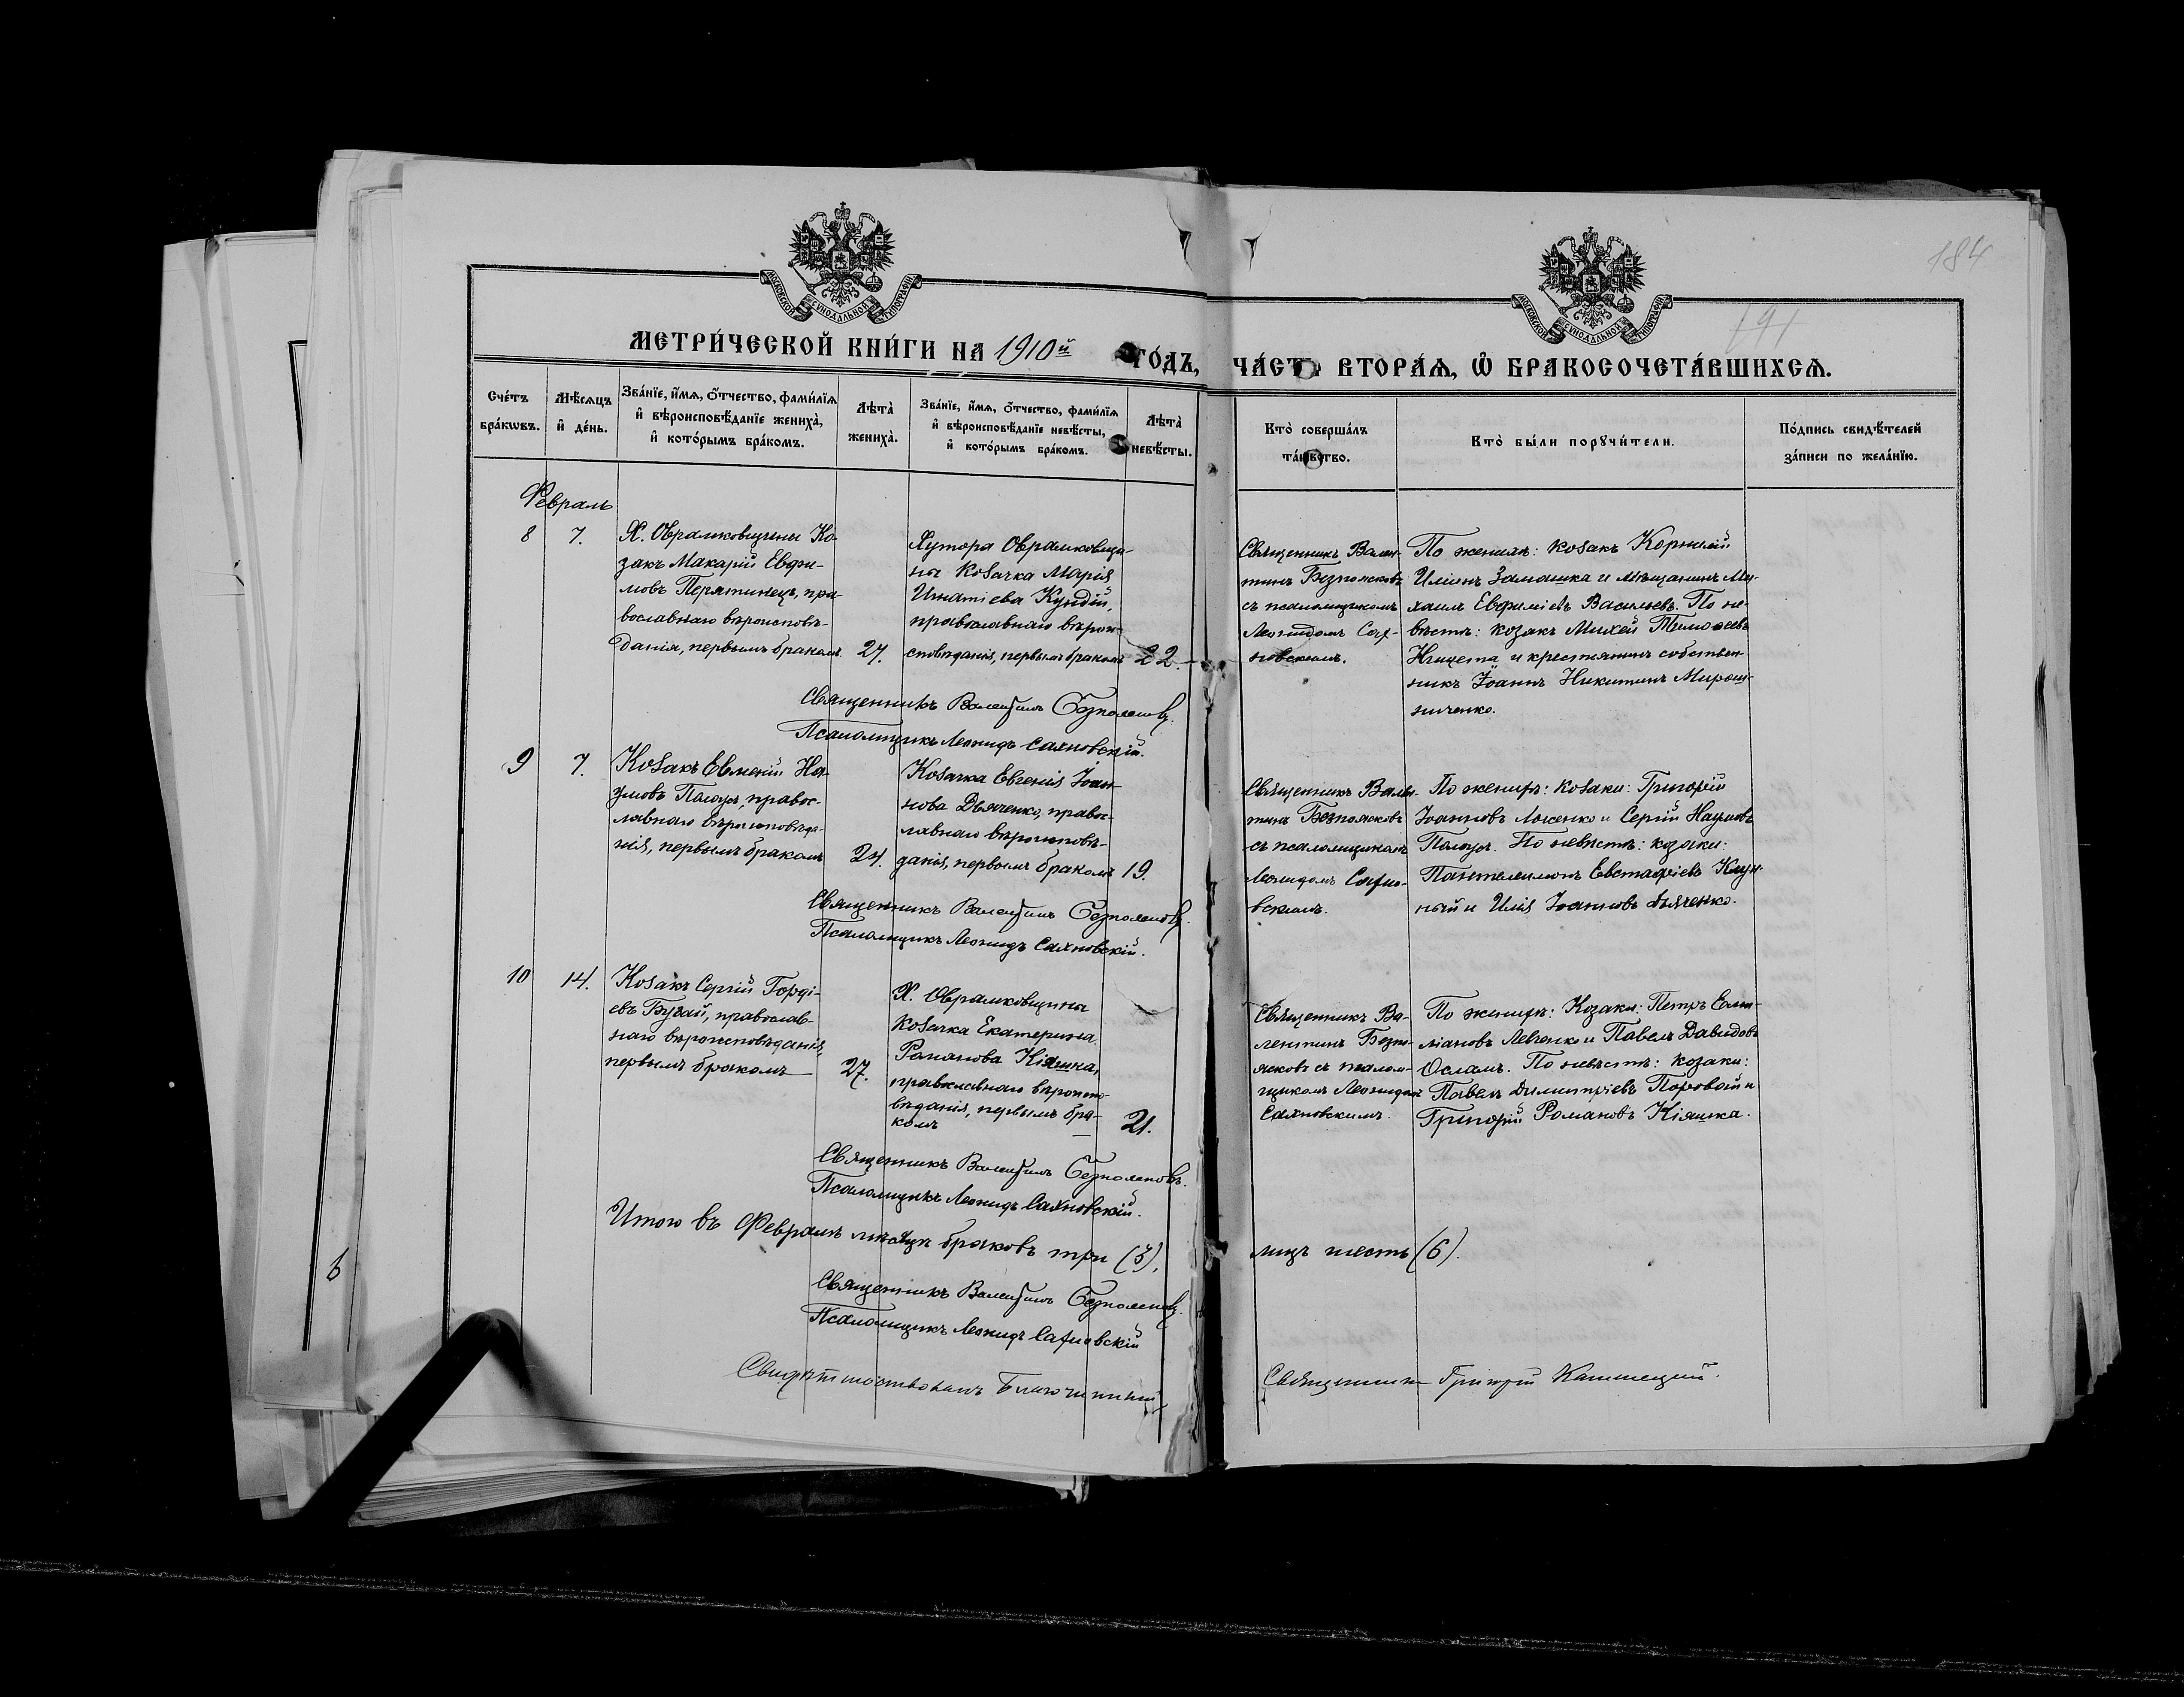 184
191
МОСКОВСКОЙ СѴНОДАЛЬНОЙ ТИПОГРАФІИ
МОСКОВСКОЙ СѴНОДАЛЬНОЙ ТИПОГРАФІИ
МЕТРИ́ЧЕСКОЙ КНИ́ГИ НА 1910й ГО́ДЪ,
ЧА́СТЬ ВТОРА́Ѧ, Ѽ БРАКОСОЧЕТА́ВШИХСѦ.
Сче́тъ
бра́кѡвъ.
Мѣ́сѧцъ
и҆ де́нь.
Зва́нїе, и҆́мѧ, ѻ҆́тчество, фами́лїѧ
и҆ вѣроисповѣ́данїе жениха̀,
и҆ кото́рымъ бра́комъ.
Лѣта̀
жениха̀.
Зва́нїе, и҆́мѧ, ѻ҆́тчество, фами́лїѧ
и҆ вѣроисповѣ́данїе невѣ́сты,
и҆ кото́рымъ бра́комъ.
Лѣта̀
невѣ́сты.
Кто̀ соверша́лъ
та́инство.
Кто̀ бы́ли порꙋчи́тели.
По́дпись свидѣ́телей
за́писи по жела́нїю.
Февраль
8
7.
Х. Оврамковщины Ко-
закъ Макарій Евфи-
мовъ Перятинецъ, пра-
вославнаго вѣроисповѣ-
данія, первымъ бракомъ.
27.
Хутора Оврамковщи-
ны козачка Марія
Игнатіева Кундій,
православнаго вѣрои-
сповѣданія, первымъ бракомъ
22.
Священникъ Вален-
тинъ Безпоясковъ
съ псаломщикомъ
Леонидомъ Сах-
новскимъ.
По женихѣ: козакъ Корнилій
Иліинъ Замашка и мѣщанинъ Ми-
хаилъ Евфиміевъ Васильевъ. По не-
вѣстѣ: козакъ Михей Тимофеевъ
Нищета и крестьянинъ собствен-
никъ Іоаннъ Никитинъ Мирош-
ниченко.
Священникъ Валентинъ Безпоясковъ.
Псаломщикъ Леонидъ Сахновскій.
9
7.
Козакъ Евменій На-
умовъ Палоусъ, правос-
лавнаго вѣроисповѣда-
нія, первымъ бракомъ
24.
Козачка Евгенія Іоан-
нова Дьяченко, правос-
лавнаго вѣроисповѣ-
данія, первымъ бракомъ
19.
Священникъ Вален-
тинъ Безпоясковъ
съ псаломщикомъ
Леонидомъ Сахно-
вскимъ.
По женихѣ: козаки: Григорій
Іоанновъ и Сергій Наумовъ
Палоусъ. По невѣстѣ: козаки:
Пантелимонъ Евстафіевъ
и Илія Іоанновъ Дьяченко.
Священникъ Валентинъ Безпоясковъ.
Псаломщикъ Леонидъ Сахновскій.
10
14.
Козакъ Сергій Горді-
евъ Бугай, православ-
наго вѣроисповѣданія,
первымъ бракомъ
27.
Х. Оврамковщина
козачка Екатерина
Романова Кіяшка,
православнаго вѣроиспо-
вѣданія, первымъ бра-
комъ
21.
Священникъ Ва-
лентинъ Безпо-
ясковъ съ псалом-
щикомъ Леонидомъ
Сахновскимъ.
По женихѣ: Козаки: Петръ Еми-
ліановъ Левченко и Павелъ Давидовъ
Осламъ. По невѣстѣ: козаки:
Павелъ Димитріевъ и
Григорій Романовъ Кіяшка.
Священникъ Валентинъ Безпоясковъ.
Псаломщикъ Леонидъ Сахновскій.
Итого въ Февралѣ мѣсяцѣ браковъ три (3),
лицъ шесть (6).
Священникъ Валентинъ Безпоясковъ.
Псаломщикъ Леонидъ Сахновскій
Свидѣтельствовалъ Благочинный,
Священникъ Григорій